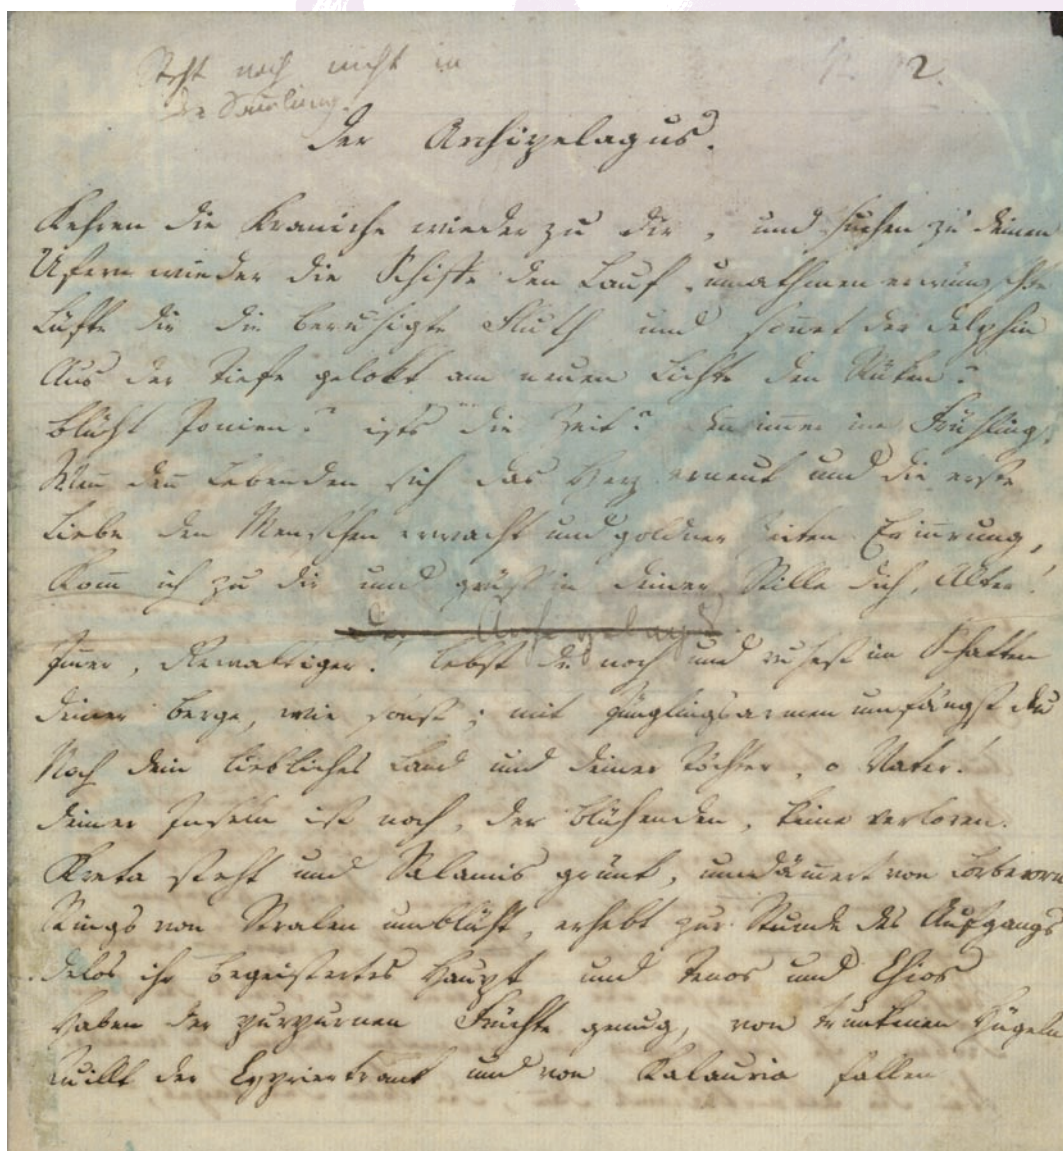 Steht noch nicht in
der Samlung.
2.
Der Archipelagus.
Kehren die Kraniche wieder zu dir, und suchen zu deinen
Ufern wieder die Schiffe den Lauf, umathmen erwünschte
Lüfte dir die beruhigte Fluth und sonnet der Delphin
Aus der Tiefe gelokt am neuen Lichte den Rüken?
Blüht Jonien? ists die Zeit? deñ im̅er im Frühling,
Weñ den Lebenden sich das Herz erneut und die erste
Liebe den Menschen erwacht und goldner Zeiten Eriñrung,
Kom̅ ich zu dir und grüß' in deiner Stille dich, Alter!
Der Archipelagus
Im̅er, Gewaltiger! lebst du noch und ruhest im Schatten
Deiner Berge, wie sonst; mit Jünglingsarmen umfängst du
Noch dein liebliches Land und deiner Töchter, o Vater!
Deiner Inseln ist noch, der blühenden, keine verloren.
Kreta steht und Salamis grünt, umdäm̅ert von Lorbeern
Rings von Stralen umblüht, erhebt zur Stunde des Aufgangs
Delos ihr begeistertes Haupt und Tenos und Chios
Haben der purpurnen Früchte genug, von trunkenen Hügeln
Quillt der Cypriertrank und von Kalauria fallen